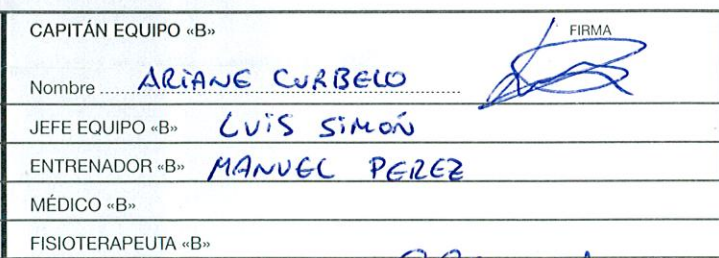 CAPITÁN EQUIPO «B» FIRMA
Nombre ARIANE CURBELO
JEFE EQUIPO «B» LUIS SIMON
ENTRENADOR «B» MANUEL PEREZ
MÉDICO «B»
FISIOTERAPEUTA «B»